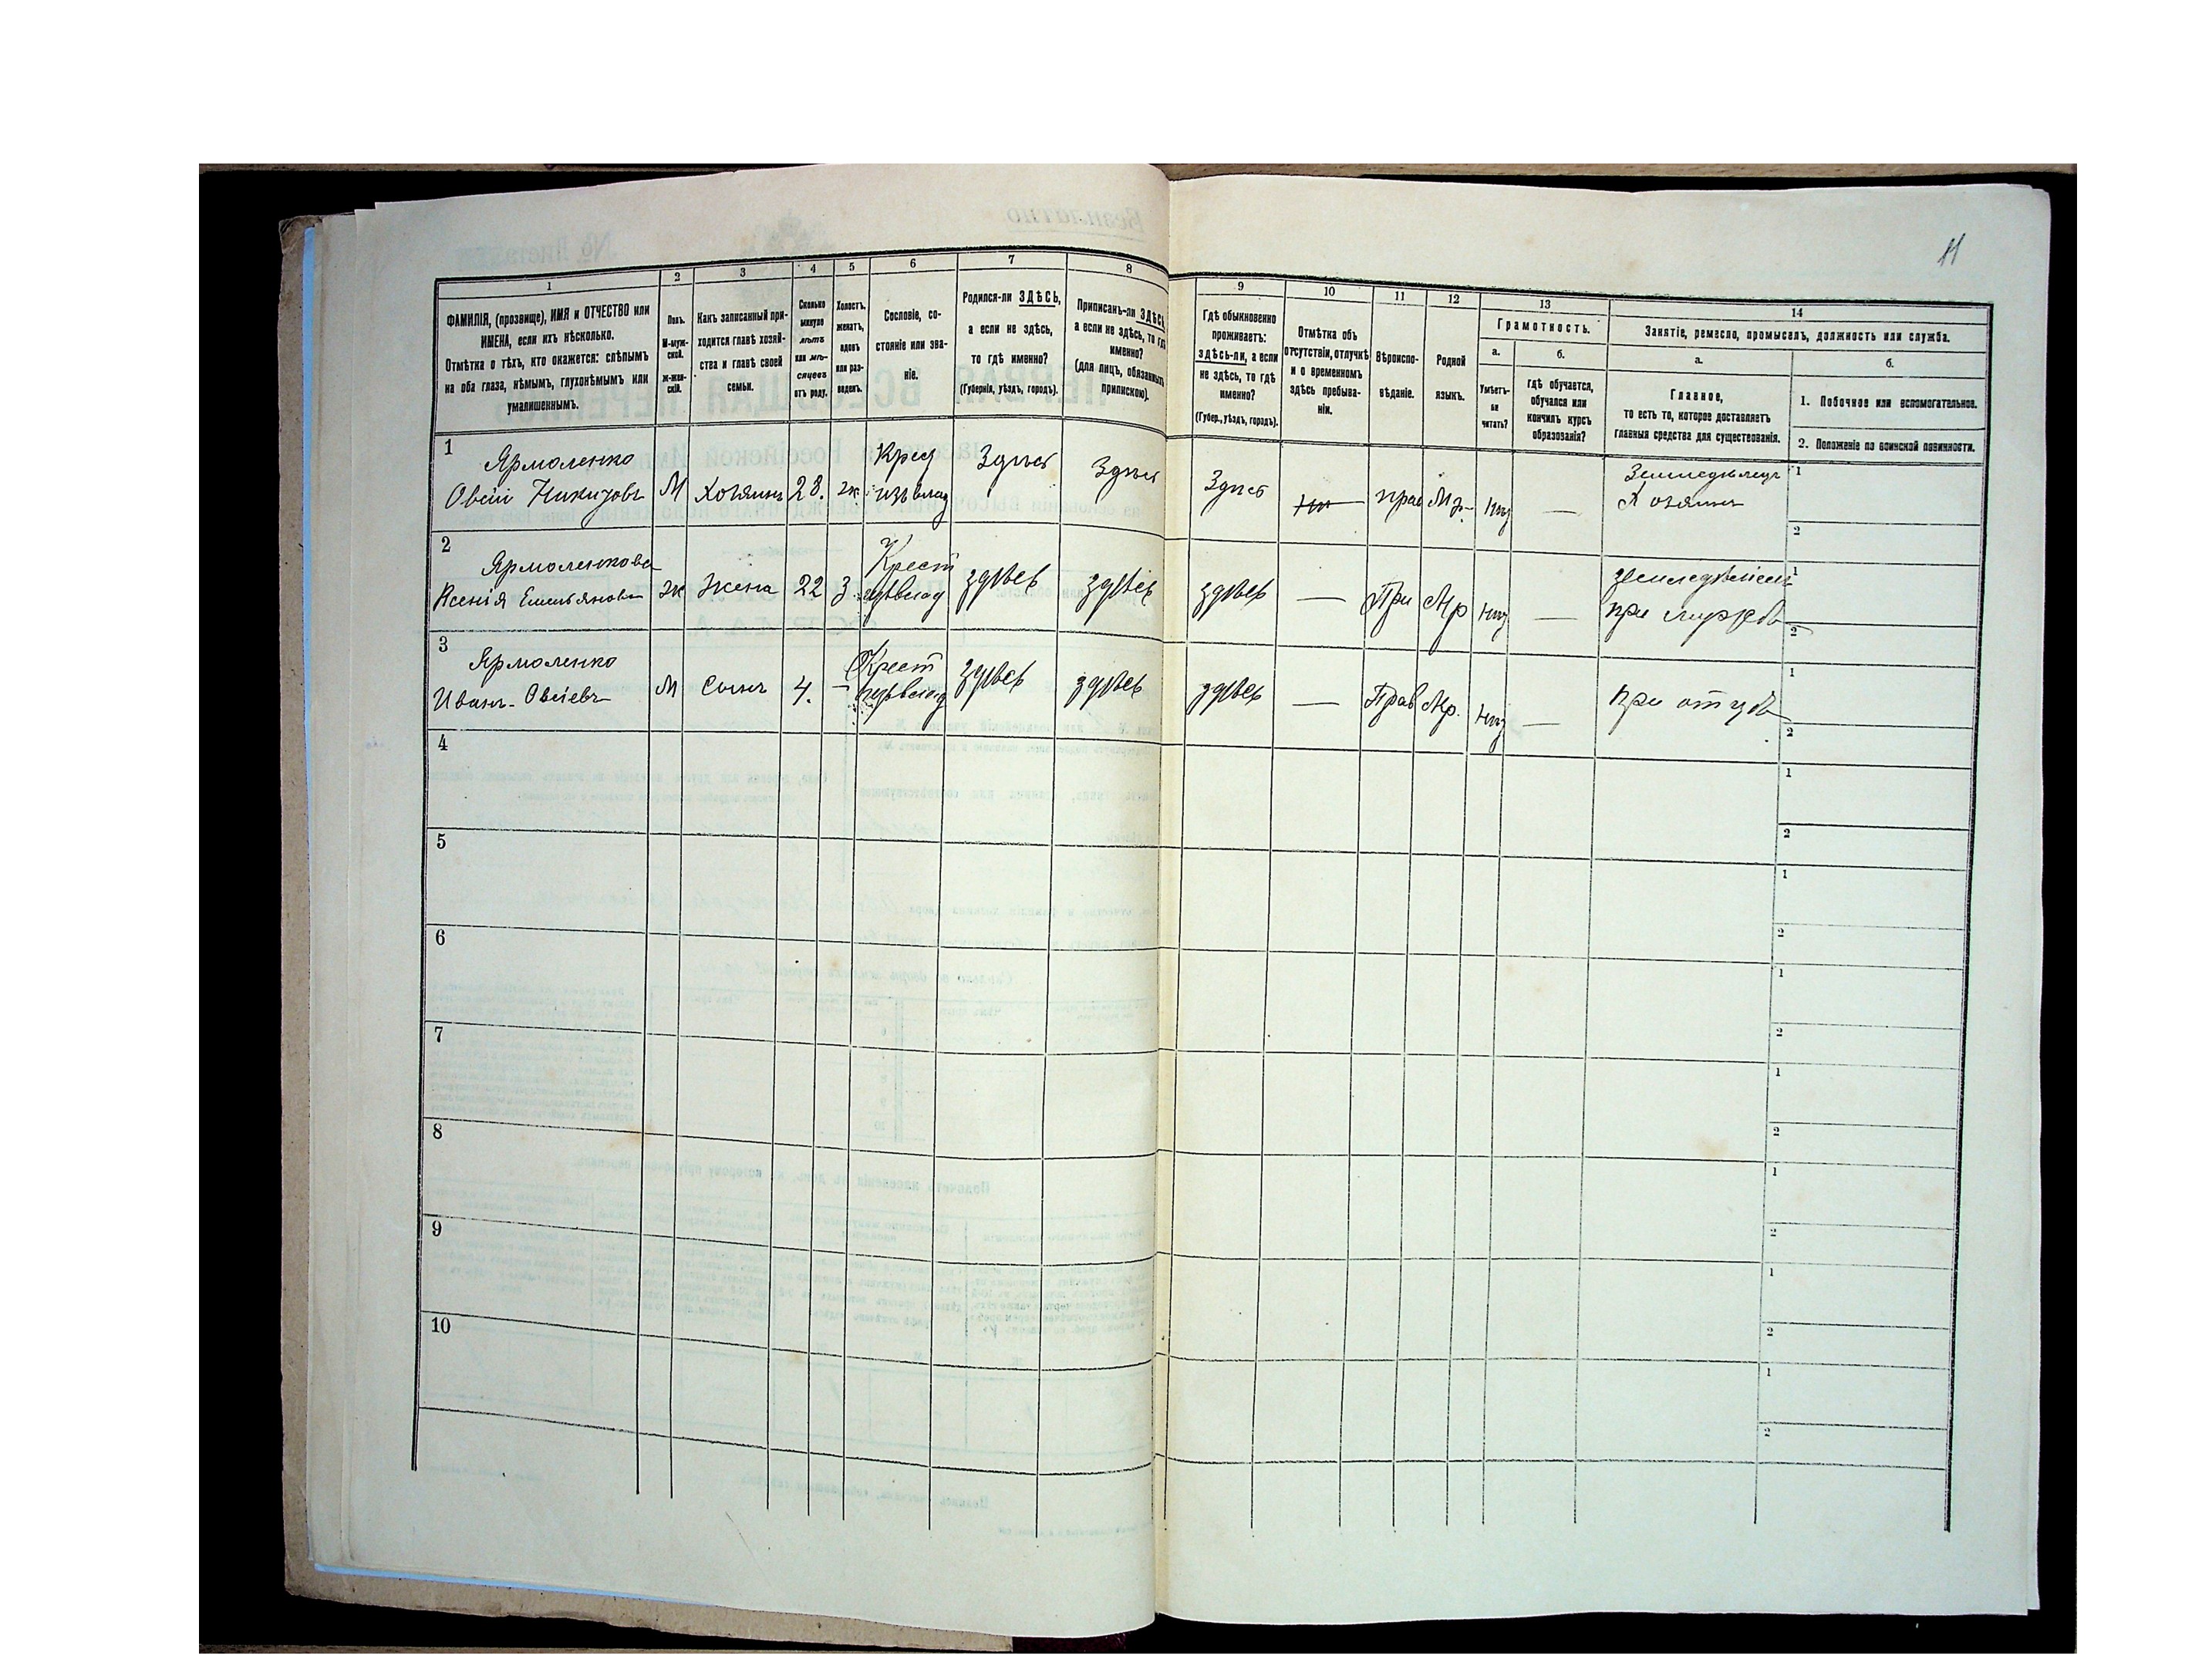 11
1
2
3
4
5
6
7
8
ФАМИЛІЯ, (прозвище), ИМЯ и ОТЧЕСТВО или
ИМЕНА, если ихъ нѣсколько.
Отмѣтка о тѣхъ, кто окажется: слѣпымъ
на оба глаза, нѣмымъ, глухонѣмымъ или
умалишеннымъ.
Полъ.
М-муж-
ской.
ж-жен-
скій.
Какъ записанный при-
ходится главѣ хозяй-
ства и главѣ своей
семьи.
Сколько
минуло
лѣтъ
или мѣ-
сяцевъ
отъ роду.
Холостъ,
женатъ,
вдовъ
или раз-
веденъ.
Сословіе, со-
стояніе или зва-
ніе.
Родился-ли ЗДѢСЬ,
а если не здѣсь,
то гдѣ именно?
(Губернія, уѣздъ, городъ).
Приписанъ-ли ЗДѢСЬ
а если не здѣсь, то гдѣ
именно?
(для лицъ, обязанныхъ
припискою).
9
10
11
12
13
14
Гдѣ обыкновенно
проживаетъ:
здѣсь-ли, а если
не здѣсь, то гдѣ
именно?
(Губер., уѣздъ, городъ).
Отмѣтка объ
отсутствіи, отлучкѣ
и о временномъ
здѣсь пребыва-
ніи.
Вѣроиспо-
вѣданіе.
Родной
языкъ.
Грамотность.
а.
Умѣетъ-
ли
читать?
б.
гдѣ обучается,
обучался или
кончилъ курсъ
образованія?
Занятіе, ремесло, промыселъ, должность или служба.
а.
Главное,
то есть то, которое доставляетъ
главныя средства для существованія.
б.
1. Побочное или вспомогательное.
2. Положеніе по воинской повинности.
1
Ярмоленко
Овсій
М
Хозяинъ
28.
ж.
Здѣсь
Здѣсь
Здѣсь
прав
Мр.
—
Земледѣлецъ
Хозяинъ
1
2
2
Ярмоленкова
Ксенія Емельянова
ж
Жена
22
З.
Крест
здѣсь
здѣсь
здѣсь
—
Мр
—
при
1
2
3
Ярмоленко
Иванъ Овсіевъ
М
Сынъ
4.
—
Крест
здѣсь
здѣсь
здѣсь
—
Прав
Мр.
—
при отцѣ
1
2
4
1
2
5
1
2
6
1
2
7
1
2
8
1
2
9
1
2
10
1
2